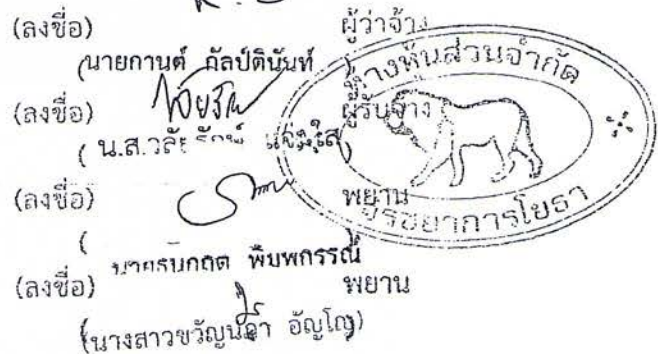 (ลงชื่อ) ผู้ว่าจ้าง
(นายกานต์ กัลป์ตินันท์
(ลงชื่อ) ผู้รับจ้าง
( น.ส.วลัยรักษ์ แจ่มใส)
(ลงชื่อ) พยาน
( นายธนกฤต พิมพกรรณ์
(ลงชื่อ) พยาน
(นางสาวขวัญนภา อัญโญ)
ห้างหุ้นส่วนจำกัด
การโยธา